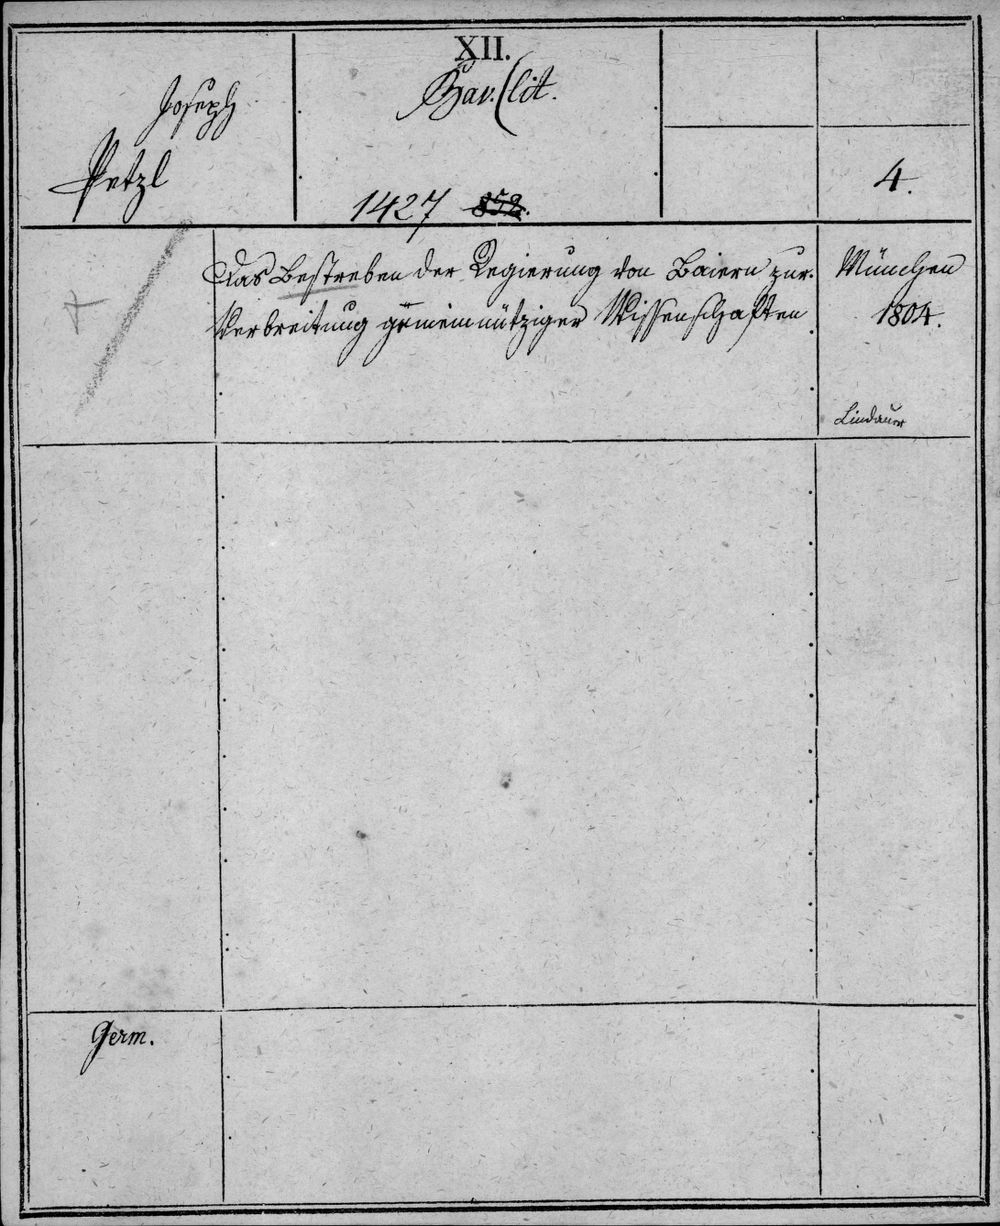 XII.
Bav. (lit.
Joseph
Petzl
4.
1427 852.
Das Bestreben der Regierung von Baiern zur
Verbreitung gemeinnütziger Wissenschaften
München
1804.
Lindauer
4
Germ.